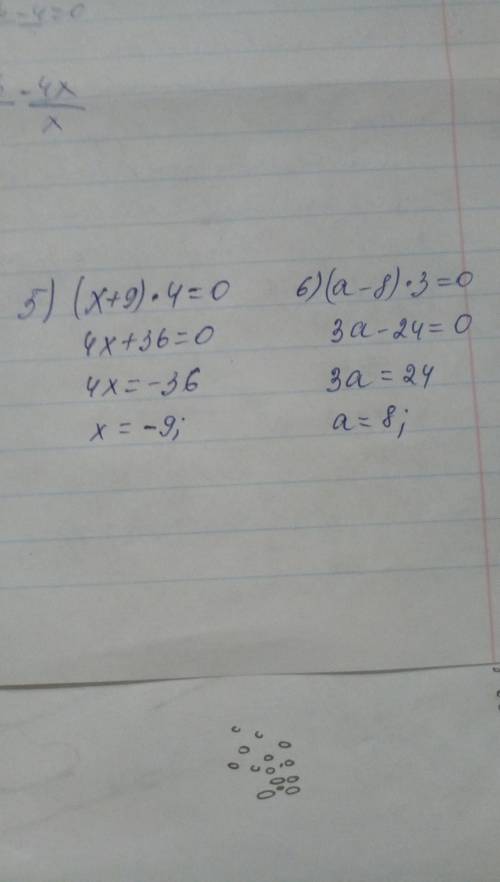 -4=0
-4x
x
5) (x+9)·4=0
4x+36=0
4x=-36
x=-9;
6) (a-8)·3=0
3a-24=0
3a=24
a=8;